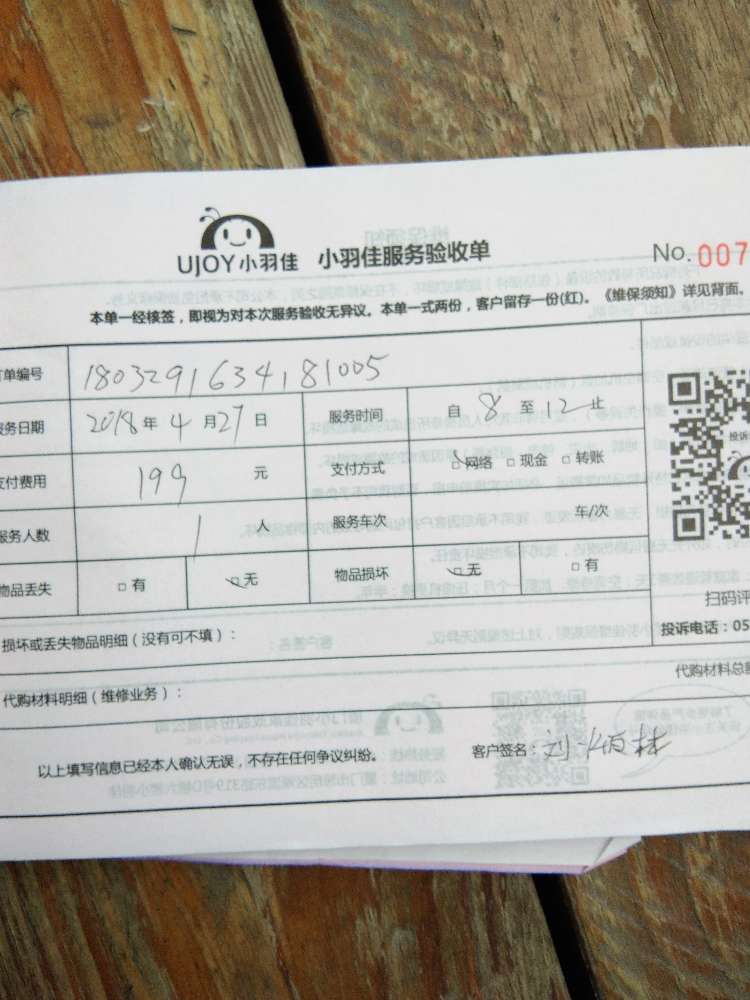 UJOY小羽佳 小羽佳服务验收单 No. 007
本单一经核签，即视为对本次服务验收无异议。本单一式两份，客户留存一份(红)。《维保须知》详见背面。
订单编号 1803291634181005
服务日期 2018年4月27日 服务时间 自8至12止
支付费用 199元 支付方式 网络 现金 转账
服务人数 1人 服务车次 车/次
物品丢失 有 无 物品损坏 无 有
扫码评
投诉电话：05
损坏或丢失物品明细（没有可不填）：
代购材料明细（维修业务）： 代购材料总
以上填写信息已经本人确认无误，不存在任何争议纠纷。 客户签名：刘炳林